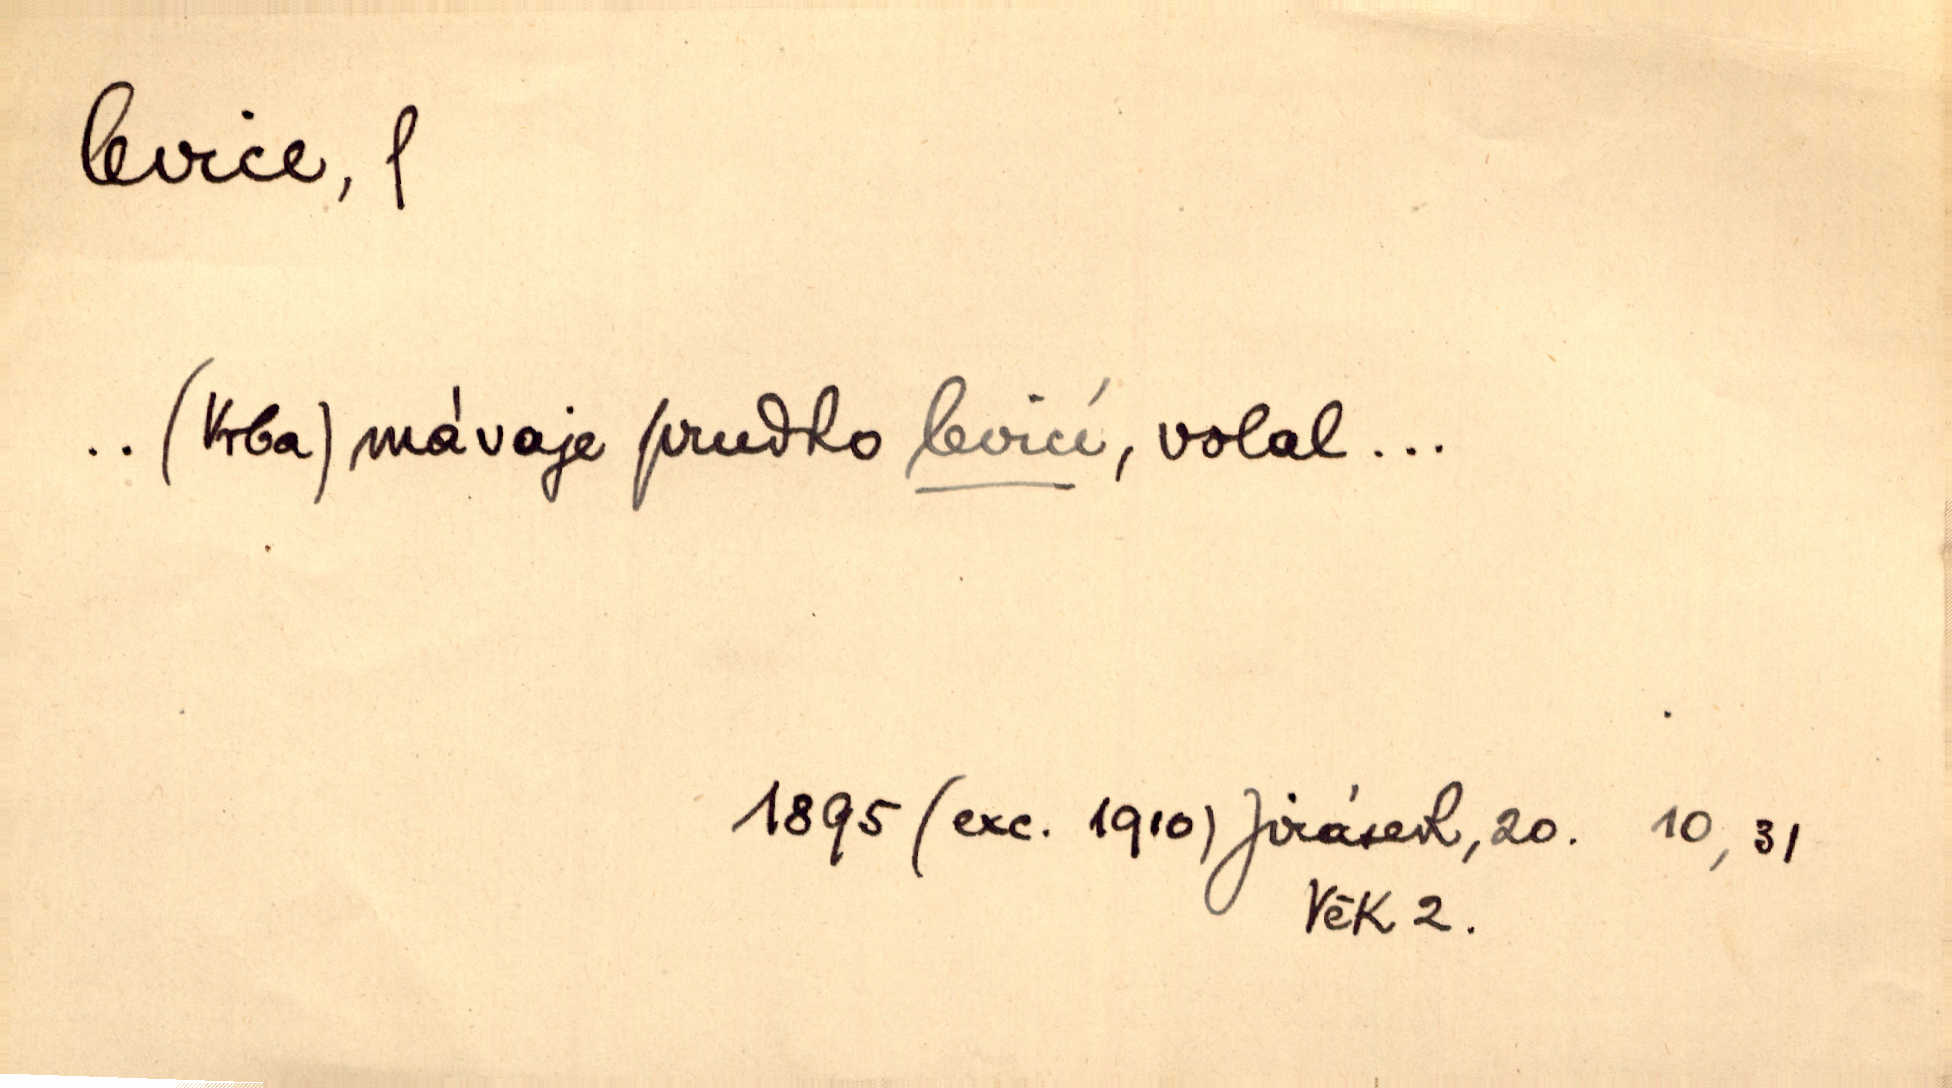 levice, f
.. (Vrba) mávaje prudko levicí, volal ...
1895 (exc. 1910) Jirásek, 20. 10, 31
Věk 2.